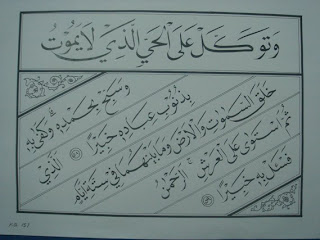 وَتَوَكَّلْ عَلَى الْحَيِّ الَّذِي لَا يَمُوتُ
وَسَبِّحْ بِحَمْدِهِ وَكَفَى بِهِ
بِذُنُوبِ عِبَادِهِ خَبِيرًا الَّذِي
خَلَقَ السَّمٰوٰتِ وَالْأَرْضَ وَمَا بَيْنَهُمَا فِي سِتَّةِ أَيَّامٍ
ثُمَّ اسْتَوَى عَلَى الْعَرْشِ الرَّحْمٰنُ
فَسْئَلْ بِهِ خَبِيرًا